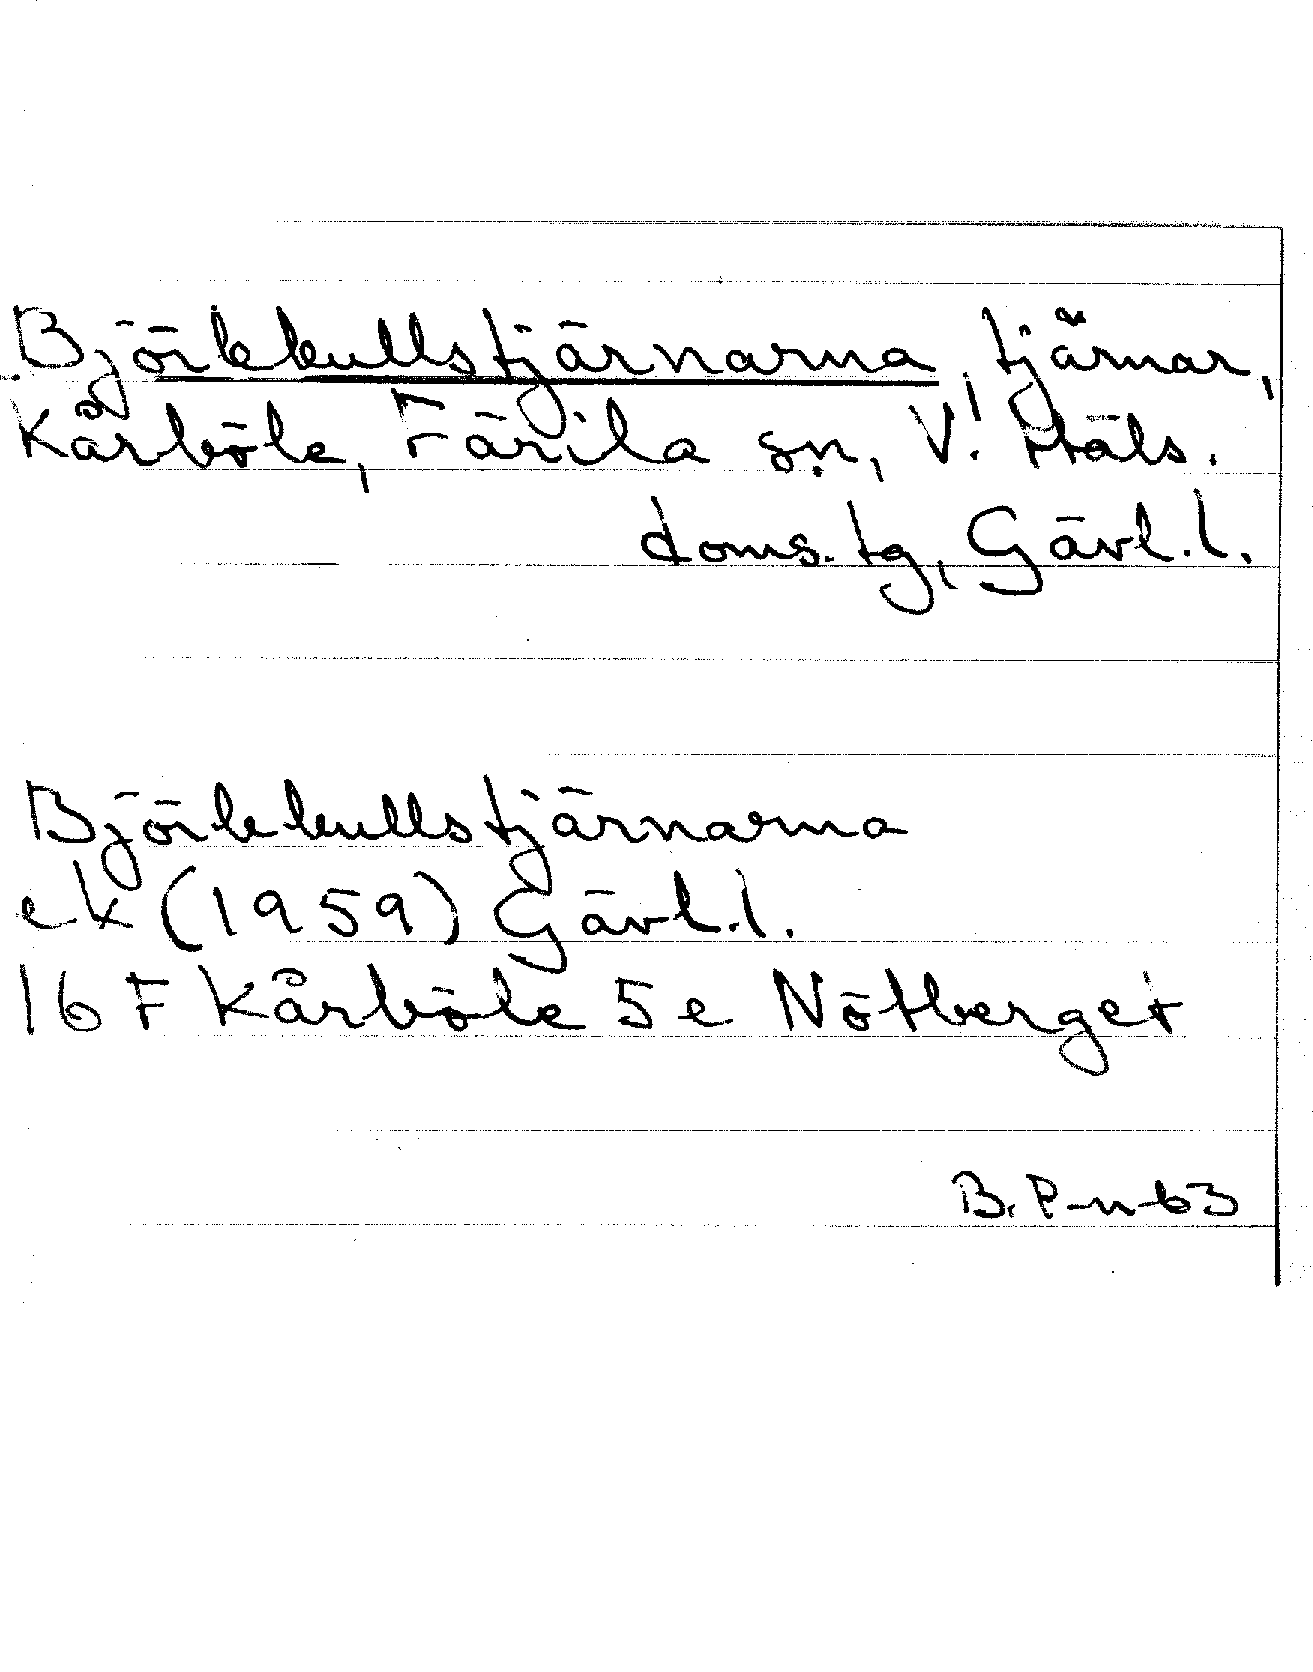 Björkkullstjärnarna, tjärnar,
Kårböle, Färila sn, V. Häls.
doms. tg, Gävl.l.
Björkkullstjärnarna
ek (1959) Gävl.l.
16 F Kårböle 5 e Nötberget
B. P-n-63